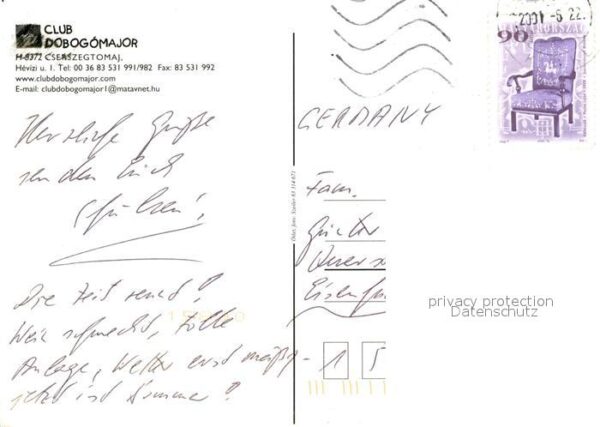 CLUB
DOBOGÓMAJOR
H-8372 CSERSZEGTOMAJ,
Hévízi u. 1. Tel: 00 36 83 531 991/982 Fax: 83 531 992
www.clubdobogomajor.com
E-mail: clubdobogomajor1@matavnet.hu
Herzliche Grüße
senden Euch
Die Zeit rennt!
Wein schmeckt, tolle
Anlage, Wetter erst mäßig -
jetzt ist Sommer!
2001 -6 22.
90
GERMANY
Fam.
Günter
1 5
privacy protection
Datenschutz